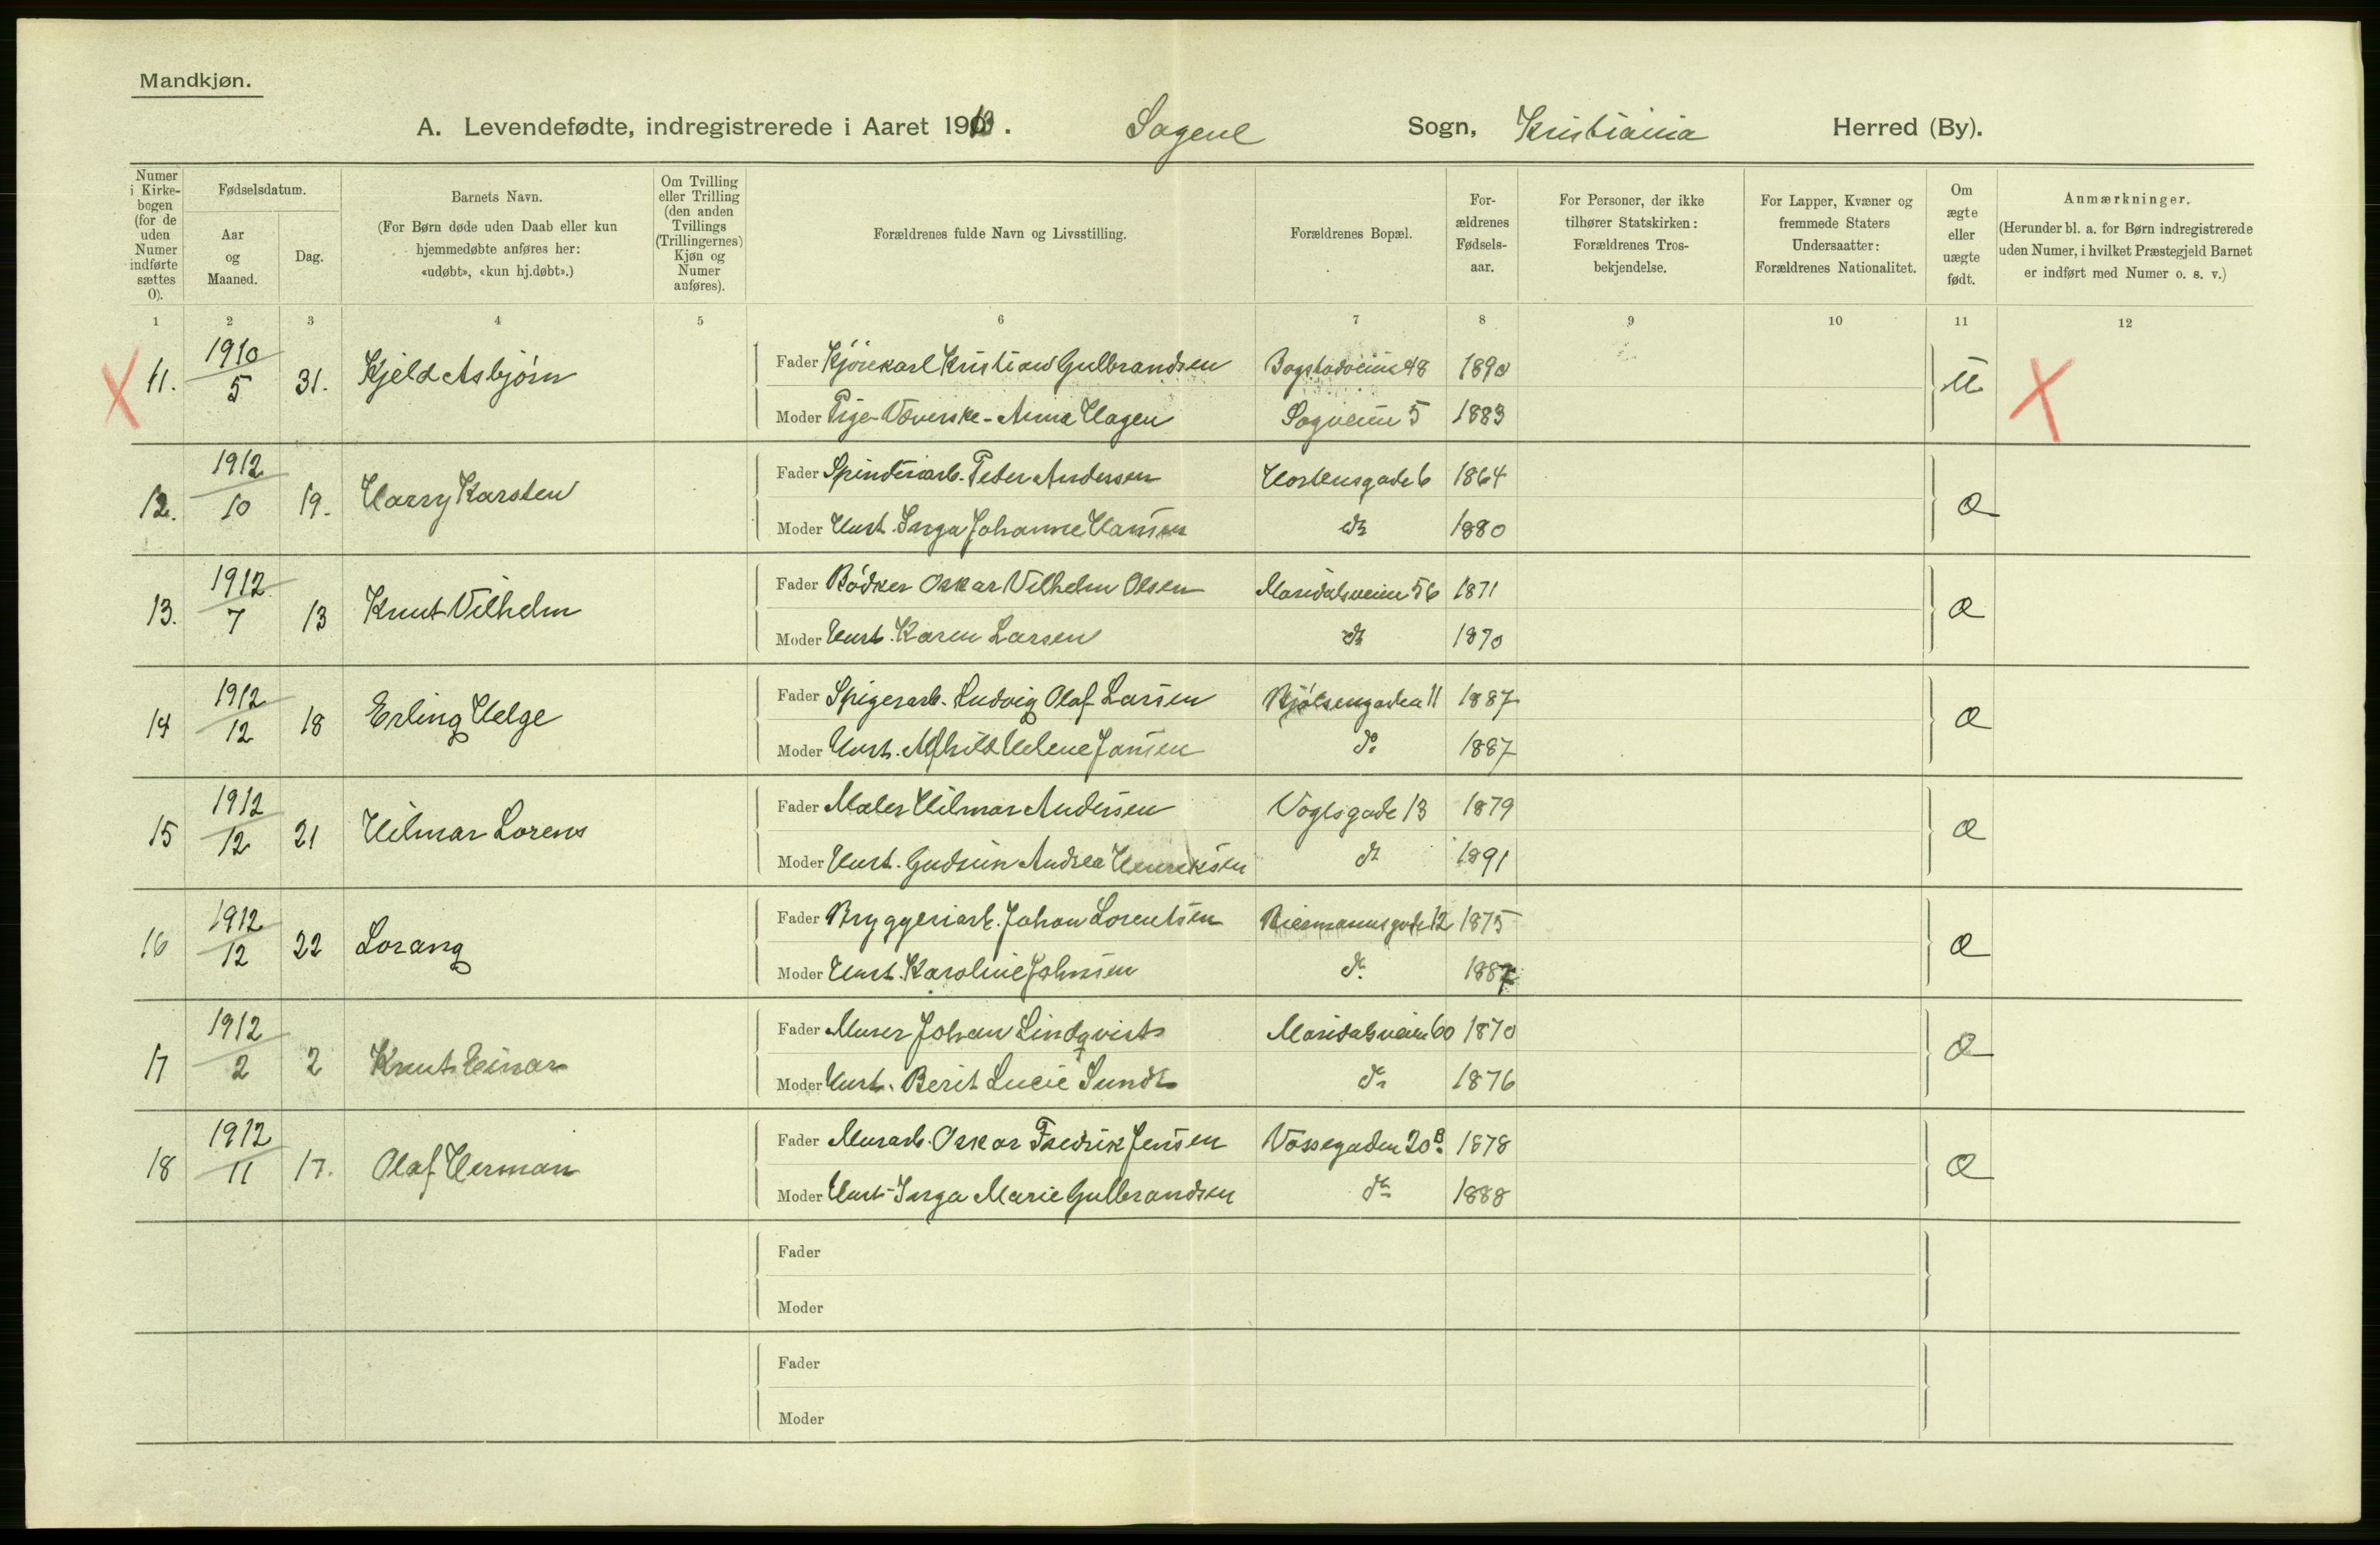 Mandkjøn.
A. Levendefødte, indregistrerede i Aaret 1913. Sagene Sogn, Kristiania Herred (By).
Numer i Kirke-bogen (for de uden Numer indførte sættes 0).
Fødselsdatum.
Aar og Maaned.
Dag.
Barnets Navn.
(For Børn døde uden Daab eller kun hjemmedøbte anføres her: «udøbt», «kun hj.døbt».)
Om Tvilling eller Trilling (den anden Tvillings (Trillingernes) Kjøn og Numer anføres).
Forældrenes fulde Navn og Livsstilling.
Forældrenes Bopæl.
For-ældrenes Fødsels-aar.
For Personer, der ikke tilhører Statskirken: Forældrenes Tros-bekjendelse.
For Lapper, Kvæner og fremmede Staters Undersaatter: Forældrenes Nationalitet.
Om ægte eller uægte født.
Anmærkninger.
(Herunder bl. a. for Børn indregistrerede uden Numer, i hvilket Præstegjeld Barnet er indført med Numer o. s. v.)
1 2 3 4 5 6 7 8 9 10 11 12
X 11. 1910/5 31. Kjeld Asbjørn Fader Kjørekarl Kristian Gulbrandsen Bogstadveien 48 1890 U X
Moder Pige-Væverske-Anna Hagen Sognveien 5 1883
12. 1912/10 19. Harry Karsten Fader Spinderiarb. Peder Andersen Hortensgade 6 1864 Æ
Moder Hust. Inga Johanne Hansen do 1880
13. 1912/7 13 Knut Vilhelm Fader Bødker Oskar Vilhelm Olsen Maridalsveien 56 1871 Æ
Moder Hust. Karen Larsen do 1870
14 1912/12 18 Erling Helge Fader Spigerarb. Ludvig Olaf Larsen Bjølsengaden 11 1887 Æ
Moder Hust. Alfhild Helene Jansen do 1887
15 1912/12 21 Hilmar Lorens Fader Maler Hilmar Andersen Vogtsgade 13 1879 Æ
Moder Hust. Gudrun Andrea Henriksen do 1891
16 1912/12 22 Lorang Fader Bryggeriarb. Johan Lorentsen Biermannsgade 12 1875 Æ
Moder Hust. Karoline Johnsen do 1887
17 1912/2 2 Knut Einar Fader Murer Johan Lindqvist Maridalsveien 60 1870 Æ
Moder Hust. Berit Lucie Sundt do 1876
18 1912/11 17. Olaf Herman Fader Murarb. Oskar Fredrik Jensen Vossegaden 20B. 1878 Æ
Moder Hust. Inga Marie Gulbrandsen do 1888
Fader
Moder
Fader
Moder